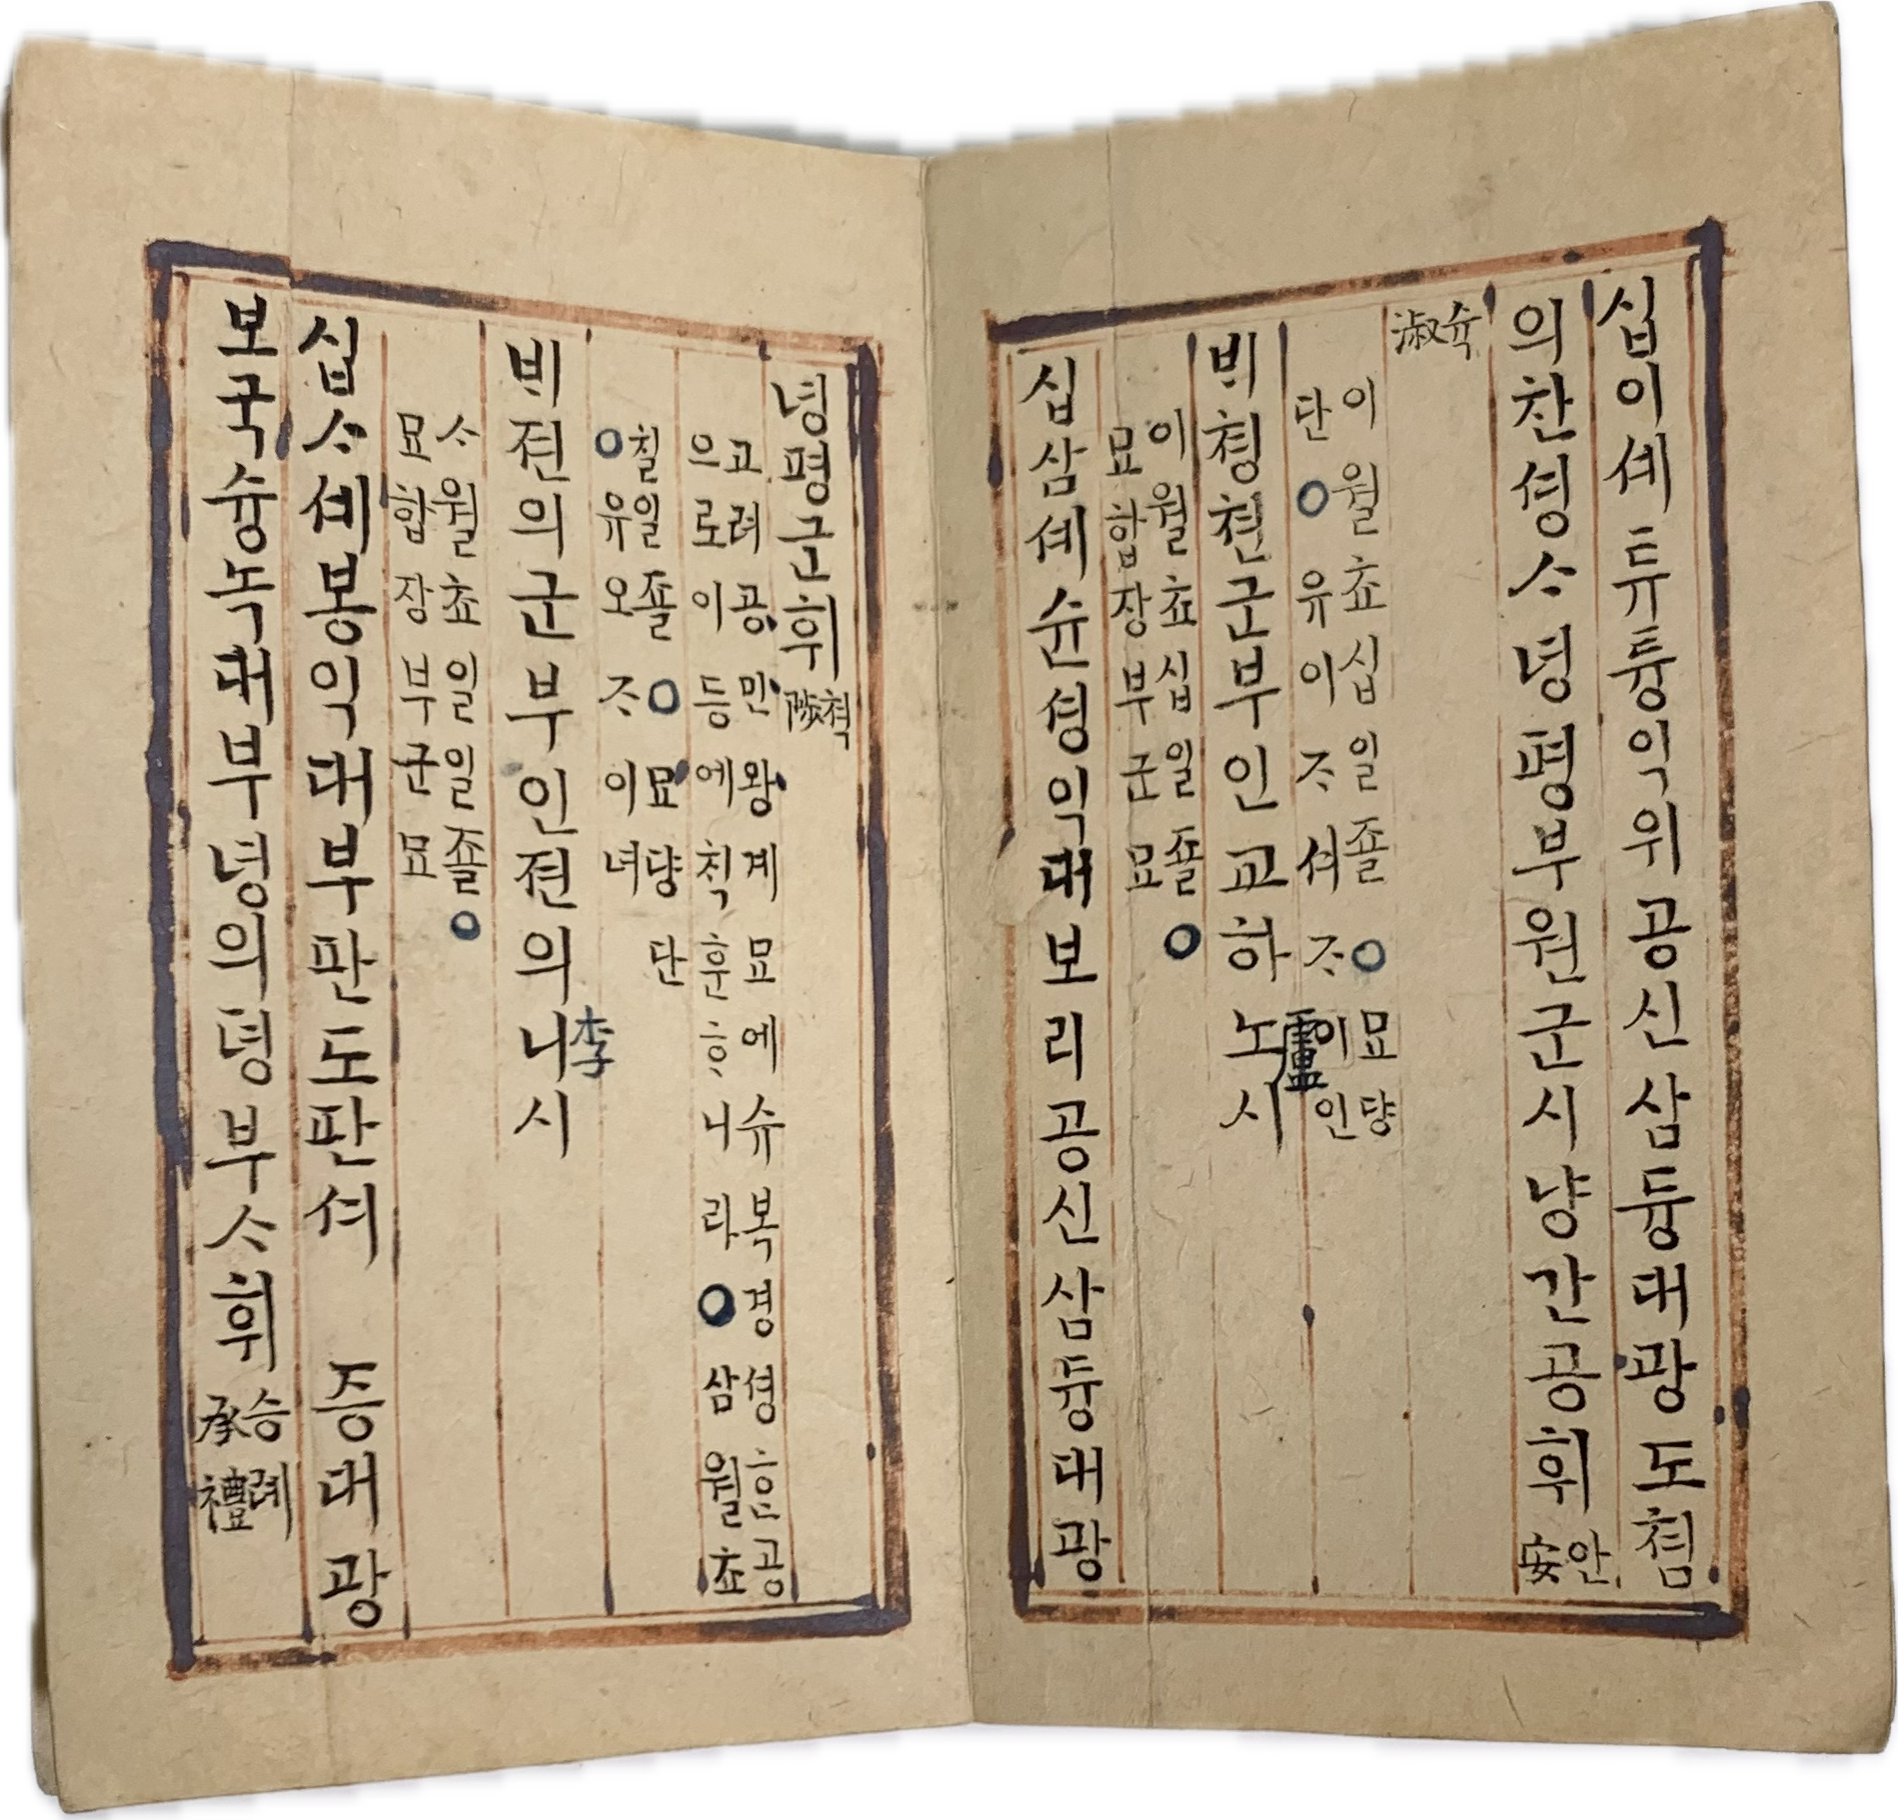 십이셰듀튱익위공신삼듕대광도쳠
의찬셩ᄉᆞ녕평부원군시냥간공휘안安
슉淑
이월쵸십일죨○묘냥
단○유이ᄌᆞ셔ᄌᆞ이인
ᄇᆡ쳥쳔군부인교하노盧시
이월쵸십일죨○
묘합장부군묘
십삼셰슌셩익대보리공신삼듕대광
녕평군휘쳑陟
고려공민왕계묘에슈복경셩ᄒᆞᆫ공
으로이등에칙훈ᄒᆞ니라○삼월쵸
칠일죨○묘냥단
○유오ᄌᆞ이녀
ᄇᆡ젼의군부인젼의니李시
ᄉᆞ월쵸일일죨○
묘합장부군묘
십ᄉᆞ셰봉익대부판도판셔 증대광
보국슝녹대부녕의뎡부ᄉᆞ휘승례承禮